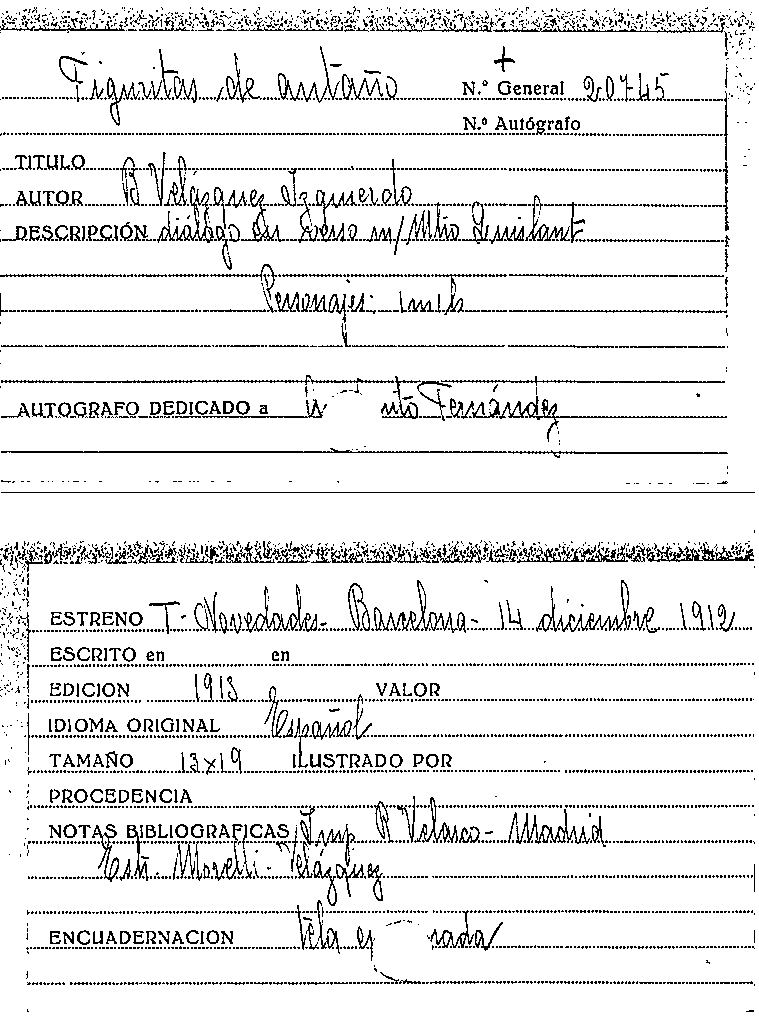 +
Figuritas de antaño N.º General 20745
N.º Autógrafo
TITULO
AUTOR B Velázquez Izquierdo
DESCRIPCIÓN diálogo en verso m/ Mtro Quislant
Personajes: 1m 1h
AUTOGRAFO DEDICADO a Fernández
ESTRENO T. Novedades - Barcelona - 14 diciembre 1912
ESCRITO en en
EDICION 1913 VALOR
IDIOMA ORIGINAL Español
TAMAÑO 13x19 ILUSTRADO POR
PROCEDENCIA
NOTAS BIBLIOGRAFICAS Imp R Velasco - Madrid
Estr. Morelli - Velázquez
ENCUADERNACION tela